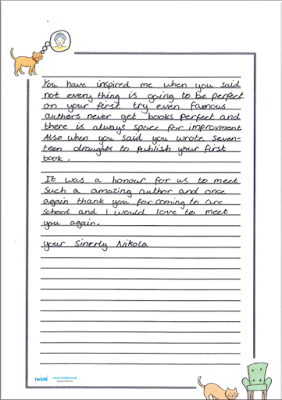 You have inspired me when you said
not everything is going to be perfect
on your first try even famous
authors never get books perfect and
there is always space for improvment
Also when you said you wrote seven-
teen draughts to publish your first
book.
It was a honour for us to meet
such a amazing author and once
again thank you for coming to are
school and I would love to meet
you again.
your Sinerly Nikola
twinkl